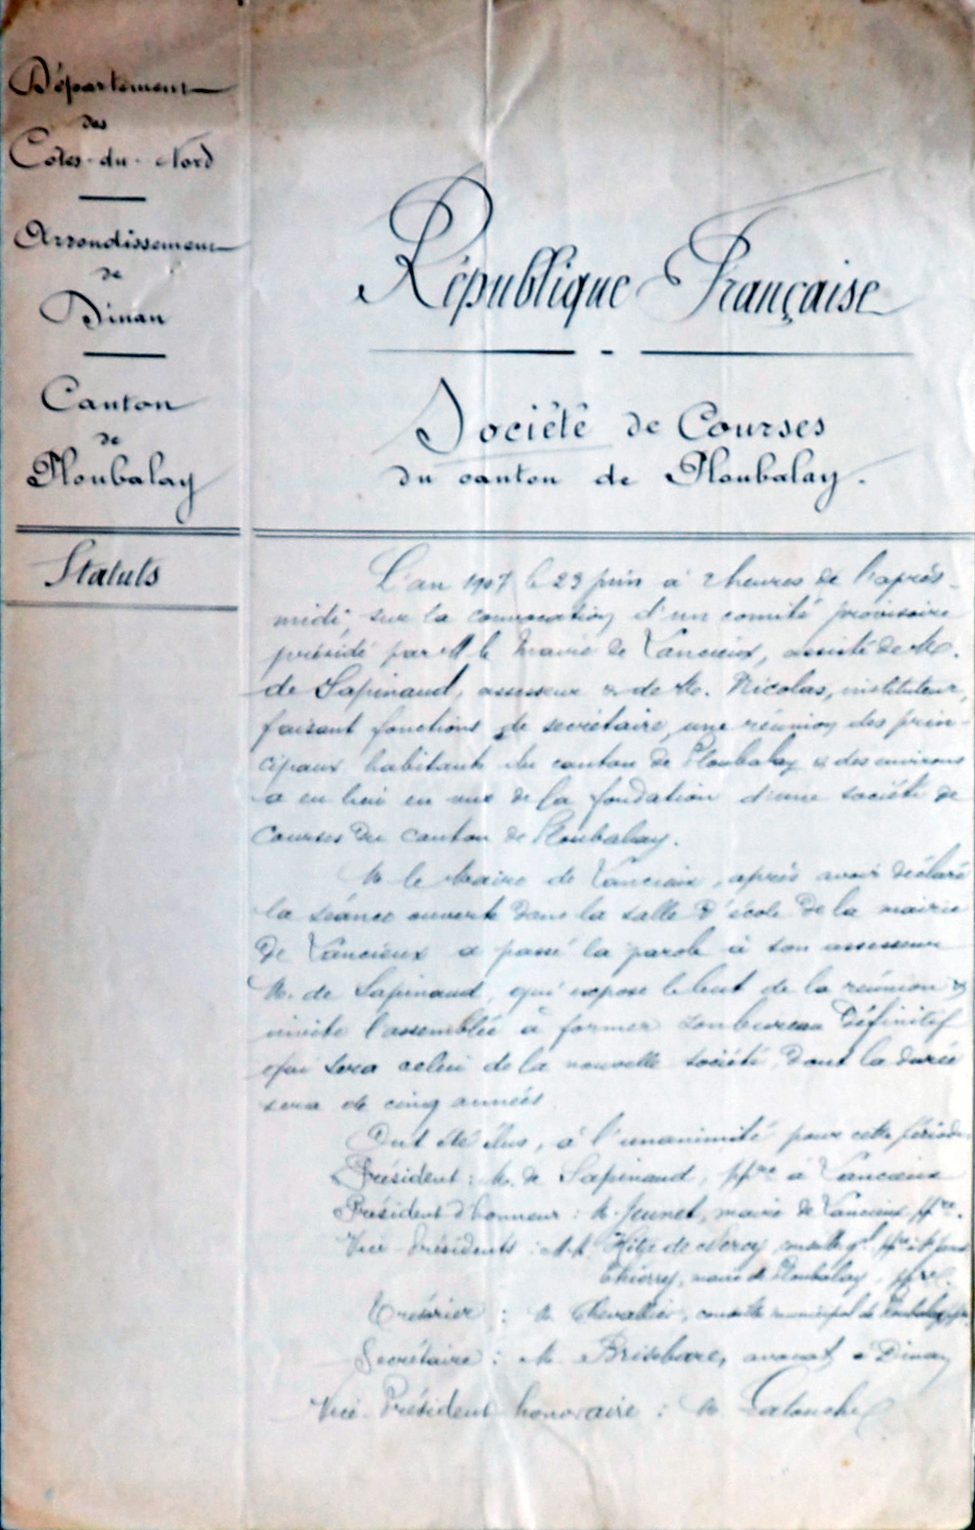 Département
des
Côtes-du-Nord
Arrondissement
de
Dinan
Canton
de
Ploubalay
République Française
Société de Courses
du canton de Ploubalay.
Statuts
L'an 1907 le 23 juin à 2 heures de l'après-
midi sur la convocation d'un comité provisoire
présidé par M. le Maire de Lancieux, assisté de M.
de Lapinaud, assesseur & de M. Nicolas, instituteur,
faisant fonctions de secrétaire, une réunion des prin-
cipaux habitants du canton de Ploubalay & des environs
a eu lieu en vue de la fondation d'une société de
Courses du canton de Ploubalay.
M. le Maire de Lancieux, après avoir déclaré
la séance ouverte dans la salle d'école de la mairie
de Lancieux a passé la parole à son assesseur
M. de Lapinaud, qui expose le but de la réunion &
invite l'assemblée à former son bureau définitif
qui sera celui de la nouvelle société, dont la durée
sera de cinq années
Ont été élus, à l'unanimité pour cette période
Président : M. de Lapinaud, ppre à Lancieux
Président d'honneur : M. Jeunet, maire de Lancieux, ppre.
Vice Présidents : M.M. de
Thierry, maire de Ploubalay, ppre.
Trésorier : M. Chevallier, conseiller municipal de Ploubalay
Secrétaire : M. avocat à Dinan
Vice-Président honoraire : M. Latouche